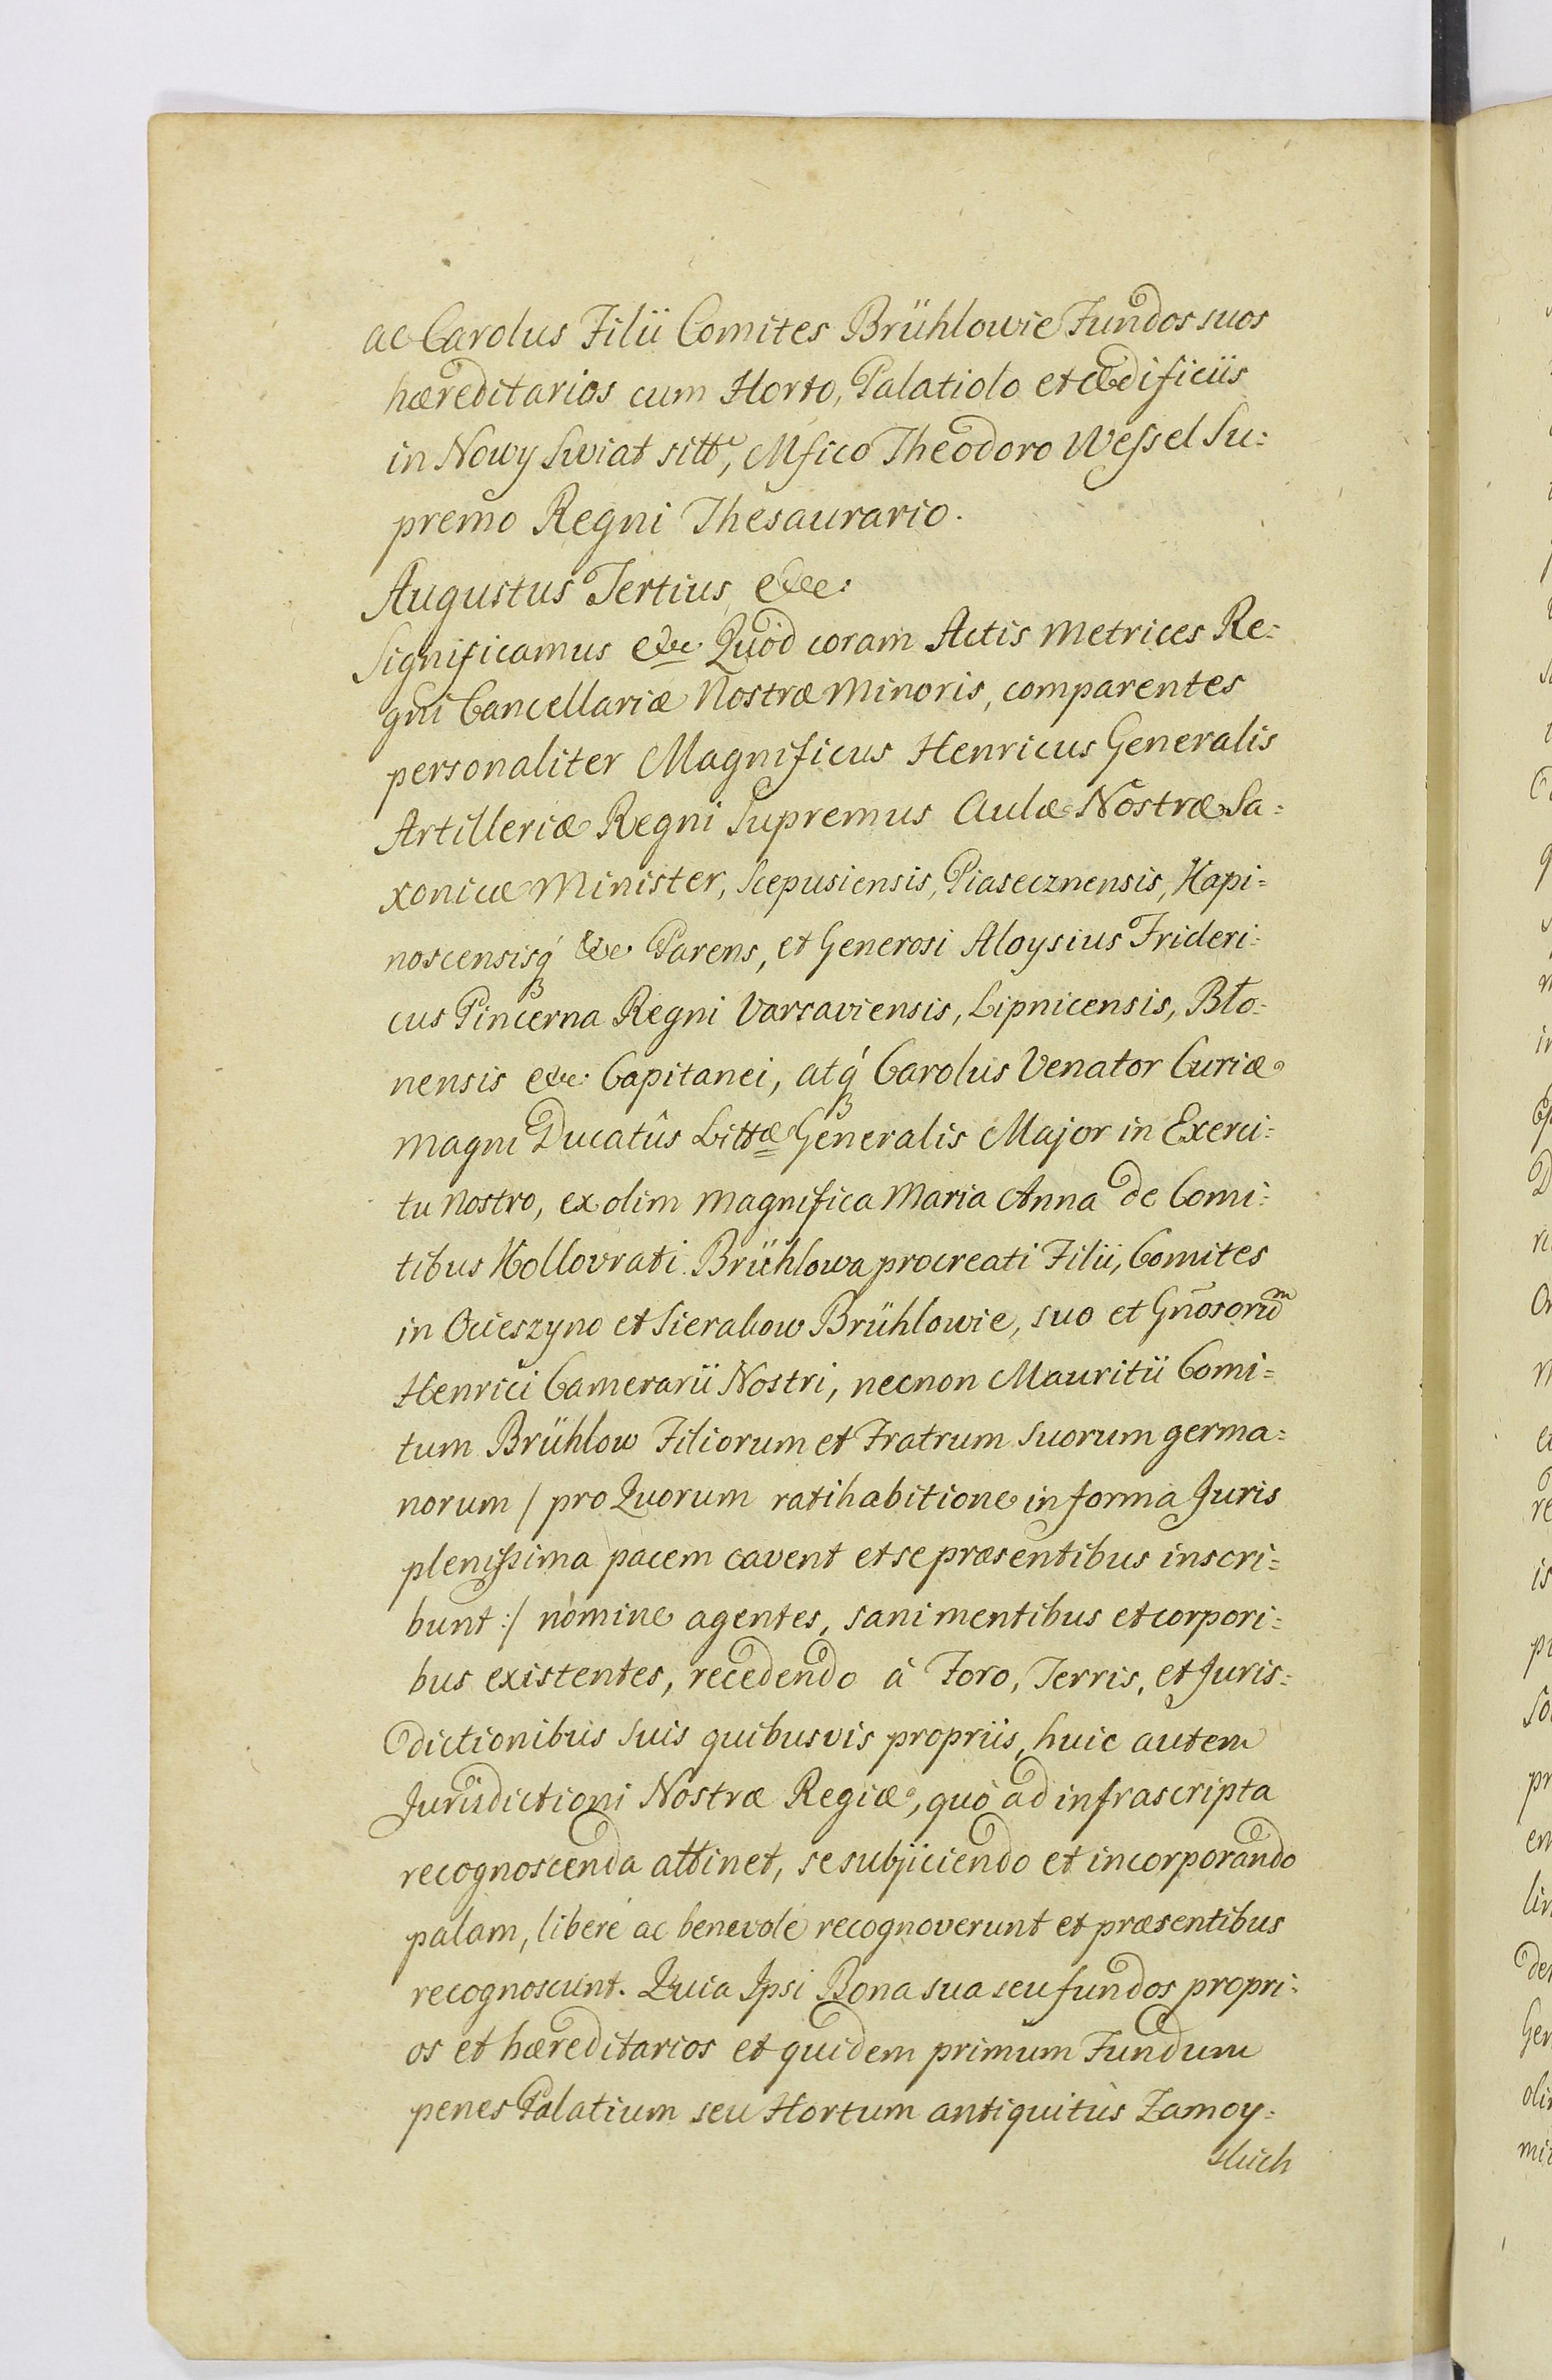 ac Carolus Filii Comites Brühlowie Fundos suos
hæreditarios cum Horto, Palatiolo et ædificiis
in Nowy Swiat sitt, Mfico Theodoro Wessel Su=
premo Regni Thesaurario.
Augustus Tertius &c:
Significamus &c Quod coram Actis Metrices Re=
gni Cancellariæ Nostræ Minoris, comparentes
personaliter Magnificus Henricus Generalis
Artilleriæ Regni Supremus Aulæ Nostræ Sa=
xonicæ Minister, Scepusiensis, Piasecznensis, Kapi=
noscensisq́ &c Parens, et Generosi Aloysius Frideri=
cus Pincerna Regni Varsaviensis, Lipnicensis, Bło=
nensis &c: Capitanei, atq́ Carolus Venator Curiæ
Magni Ducatûs Littæ Generalis Major in Exerci=
tu Nostro, ex olim Magnifica Maria Anna de Comi=
tibus Kollovrati Brühlowa procreati Filii, Comites
in Ocieszyno et Sierakow Brühlowie, suo et Gnõsorum
Henrici Camerarii Nostri, necnon Mauritii Comi=
tum Brühlow Filiorum et Fratrum Suorum germa=
norum / pro Quorum ratihabitione in forma Juris
plenissima pacem cavent et se præsentibus inscri=
bunt :/ nomine agentes, sani mentibus et corpori=
bus existentes, recedendo à Foro, Terris, et Juris=
dictionibus Suis quibusvis propriis, huic autem
Jurisdictioni Nostræ Regiæ, quò ad infrascripta
recognoscenda attinet, se subjiciendo et incorporando
palam, liberè ac benevolè recognoverunt et præsentibus
recognoscunt. Quia Ipsi Bona sua seu fundos propri=
os et hæreditarios et quidem primum Fundum
penes Palatium seu Hortum antiquitùs Zamoy=
skich